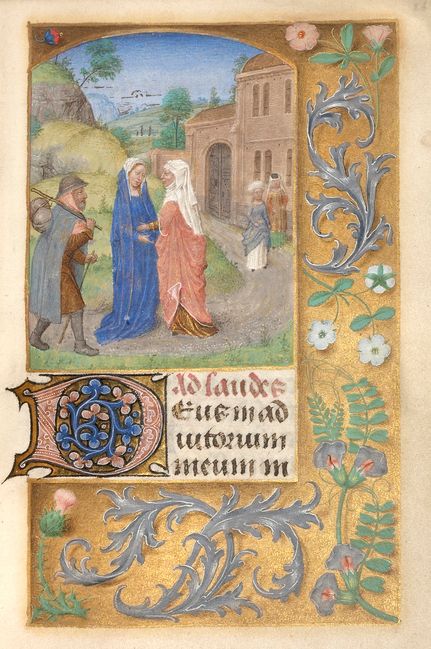 Ad laudes
Deus in ad
iutorium
meum in